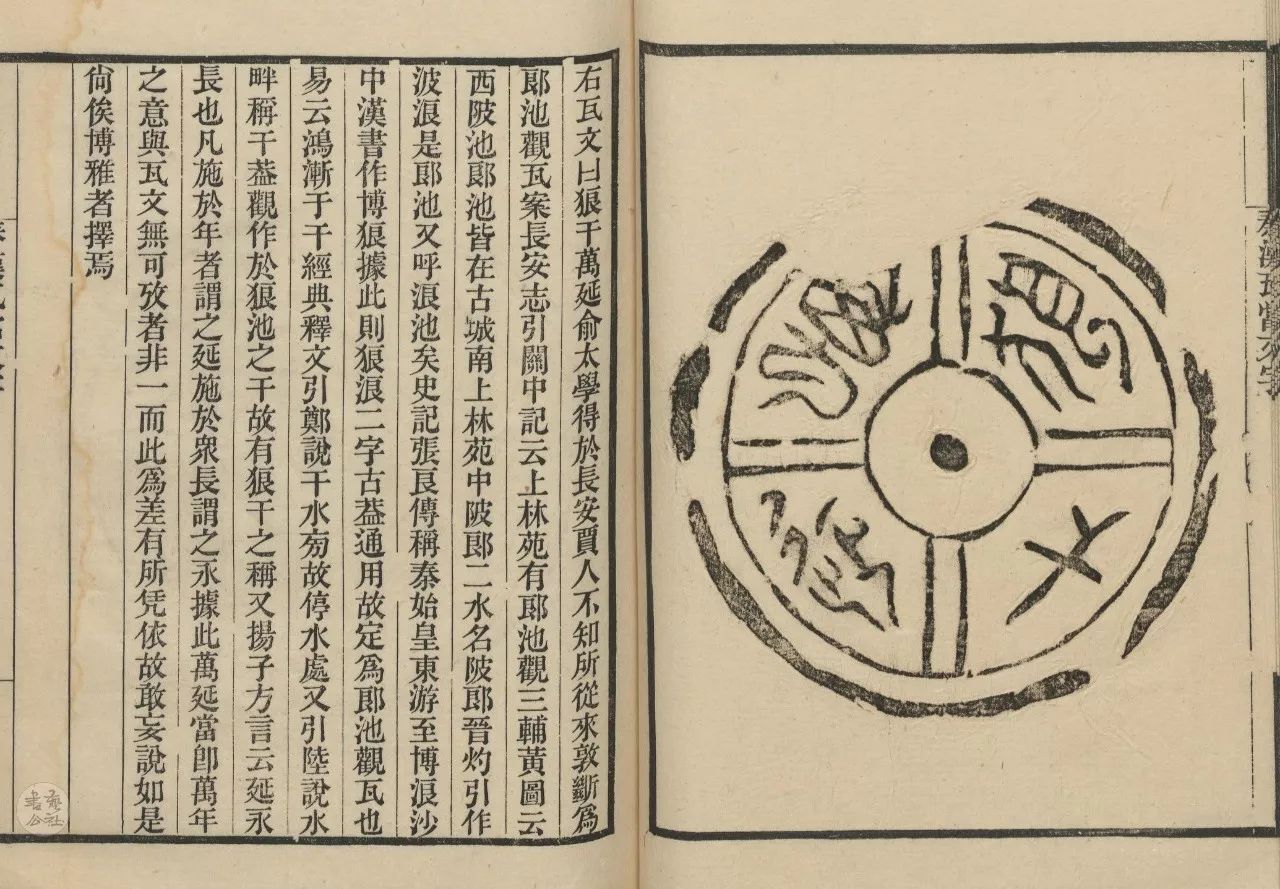 秦漢瓦當文字
狼干
萬延
右瓦文曰狼干萬延俞太學得於長安賈人不知所從來敦斷爲
郞池觀瓦案長安志引關中記云上林苑有郞池觀三輔黃圖云
西陂池郞池皆在古城南上林苑中陂郞二水名陂郞晉灼引作
波浪是郞池又呼浪池矣史記張良傳稱秦始皇東游至博浪沙
中漢書作博狼據此則狼浪二字古葢通用故定爲郞池觀瓦也
易云鴻漸于干經典釋文引鄭說干水㫄故停水處又引陸說水
畔稱干葢觀作於狼池之干故有狼干之稱又揚子方言云延永
長也凡施於年者謂之延施於衆長謂之永據此萬延當卽萬年
之意與瓦文無可攷者非一而此爲差有所凭依故敢妄說如是
尙俟博雅者擇焉